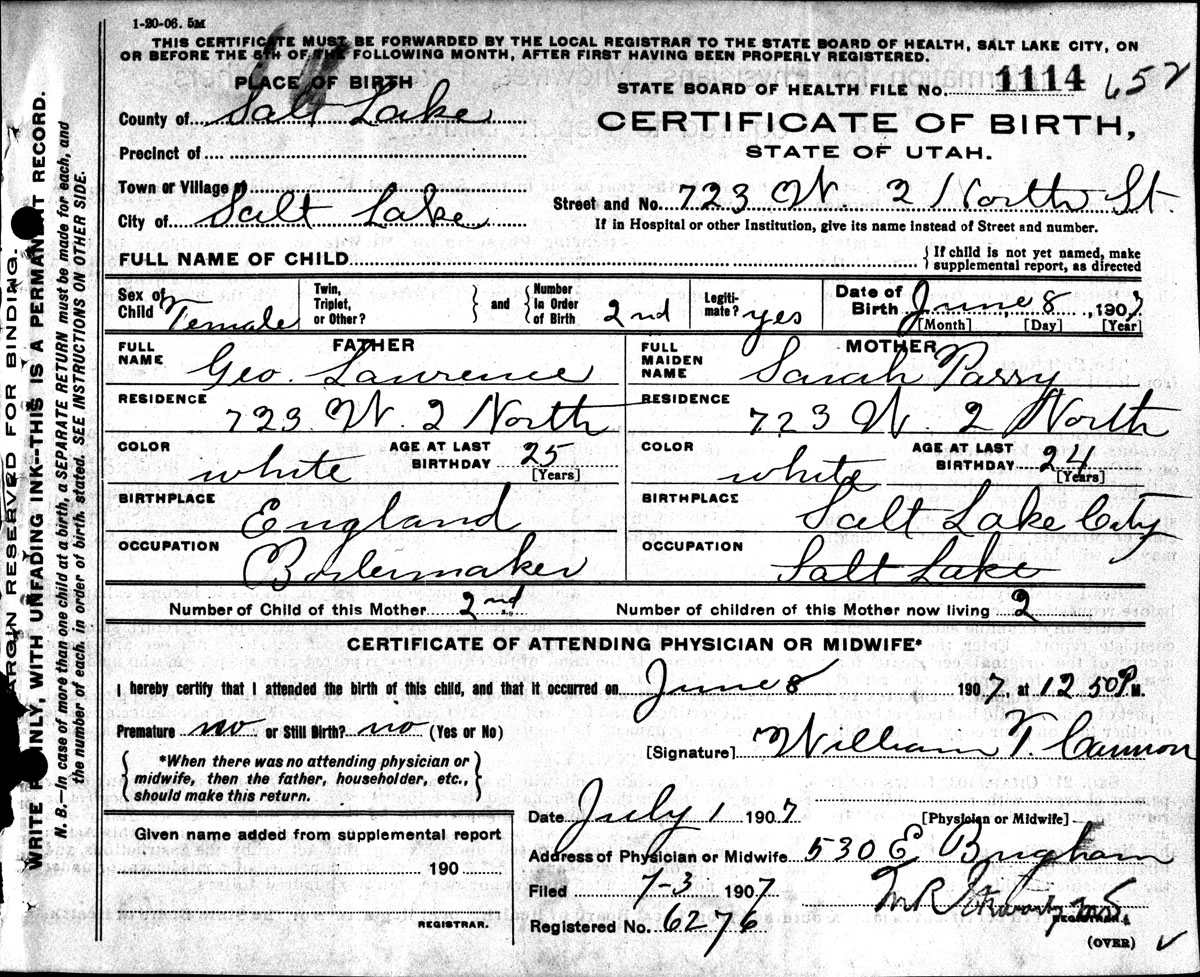 1-20-06. 5M
THIS CERTIFICATE MUST BE FORWARDED BY THE LOCAL REGISTRAR TO THE STATE BOARD OF HEALTH, SALT LAKE CITY, ON
OR BEFORE THE 5TH OF THE FOLLOWING MONTH, AFTER FIRST HAVING BEEN PROPERLY REGISTERED.
PLACE OF BIRTH
STATE BOARD OF HEALTH FILE No. 1114 652
County of Salt Lake
CERTIFICATE OF BIRTH,
Precinct of
STATE OF UTAH.
Town or Village of
Street and No. 723 W. 2 North St.
City of Salt Lake
If in Hospital or other Institution, give its name instead of Street and number.
FULL NAME OF CHILD
If child is not yet named, make
supplemental report, as directed
Sex of Child Female
Twin, Triplet, or Other? and Number in Order of Birth 2nd
Legitimate? yes
Date of Birth June 8, 1907
[Month] [Day] [Year]
FATHER
FULL NAME Geo. Lawrence
RESIDENCE 723 W. 2 North
COLOR white AGE AT LAST BIRTHDAY 25 [Years]
BIRTHPLACE England
OCCUPATION Boilermaker
MOTHER
FULL MAIDEN NAME Sarah Parry
RESIDENCE 723 W. 2 North
COLOR white AGE AT LAST BIRTHDAY 24 [Years]
BIRTHPLACE Salt Lake City
OCCUPATION Salt Lake
Number of Child of this Mother 2nd Number of children of this Mother now living 2
CERTIFICATE OF ATTENDING PHYSICIAN OR MIDWIFE*
I hereby certify that I attended the birth of this child, and that it occurred on June 8 1907, at 12 50 P M.
Premature no or Still Birth? no (Yes or No)
[Signature] William T. Cannon
*When there was no attending physician or
midwife, then the father, householder, etc.,
should make this return.
Date July 1 1907 [Physician or Midwife]
Given name added from supplemental report
190
REGISTRAR.
Address of Physician or Midwife 530 E Brigham
Filed 7-3 1907
REGISTRAR.
Registered No. 6276
(OVER)
MARGIN RESERVED FOR BINDING.
WRITE PLAINLY, WITH UNFADING INK--THIS IS A PERMANENT RECORD.
N. B.—In case of more than one child at a birth, a SEPARATE RETURN must be made for each, and
the number of each, in order of birth, stated. SEE INSTRUCTIONS ON OTHER SIDE.